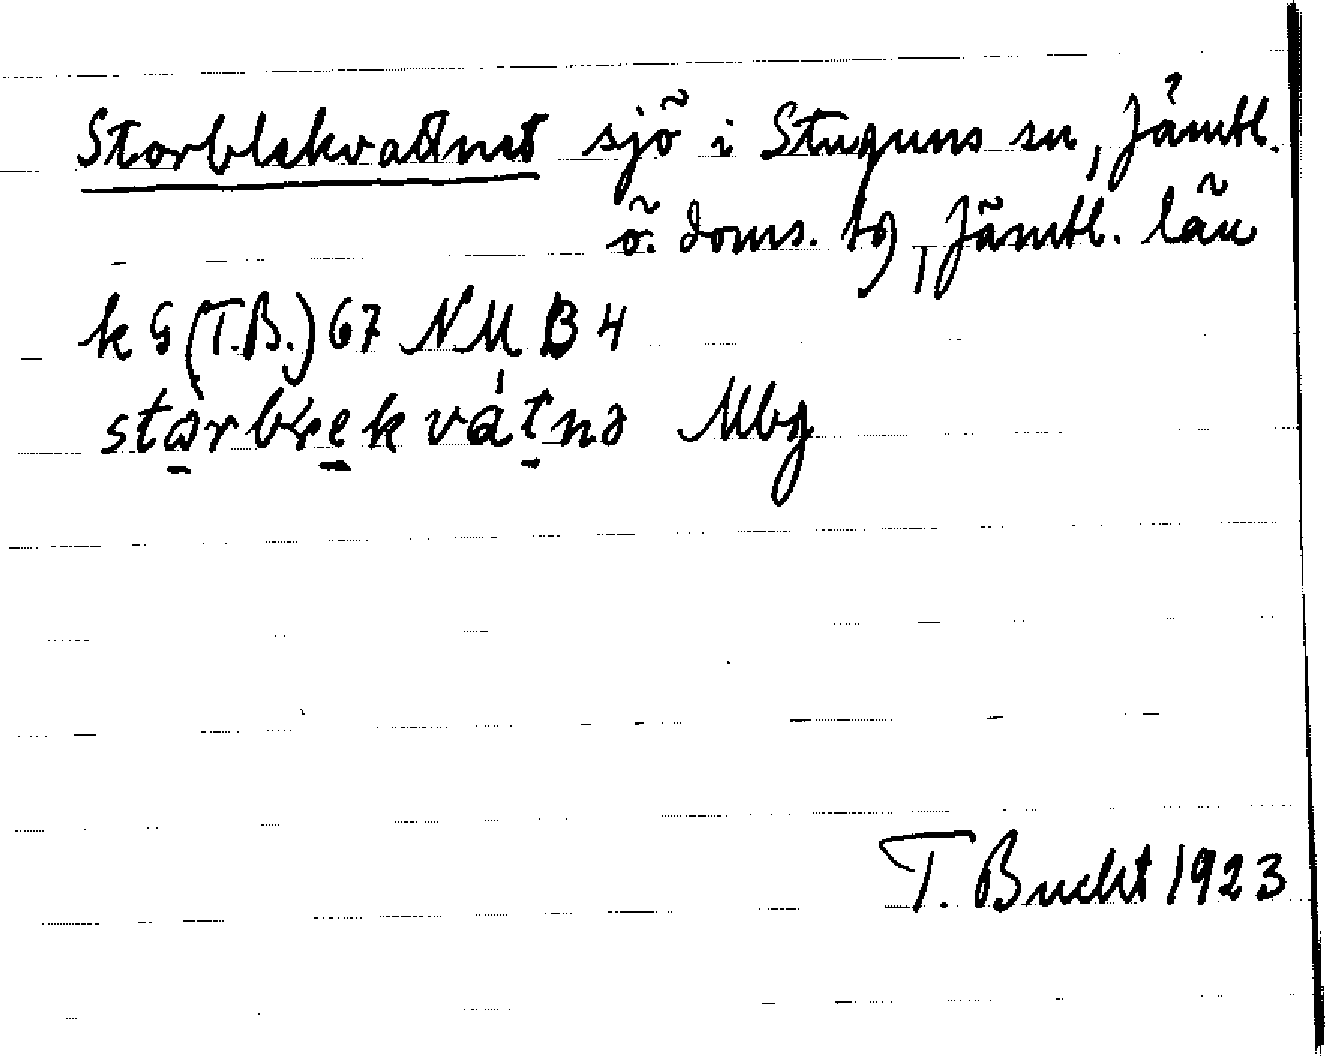 Storblekvattnet sjö i Stuguns sn, Jämtl.
ö. doms. tg, Jämtl. län
k G (T.B.) 67 NM B 4
stårbɽekvátnə Mbg
T. Bucht 1923